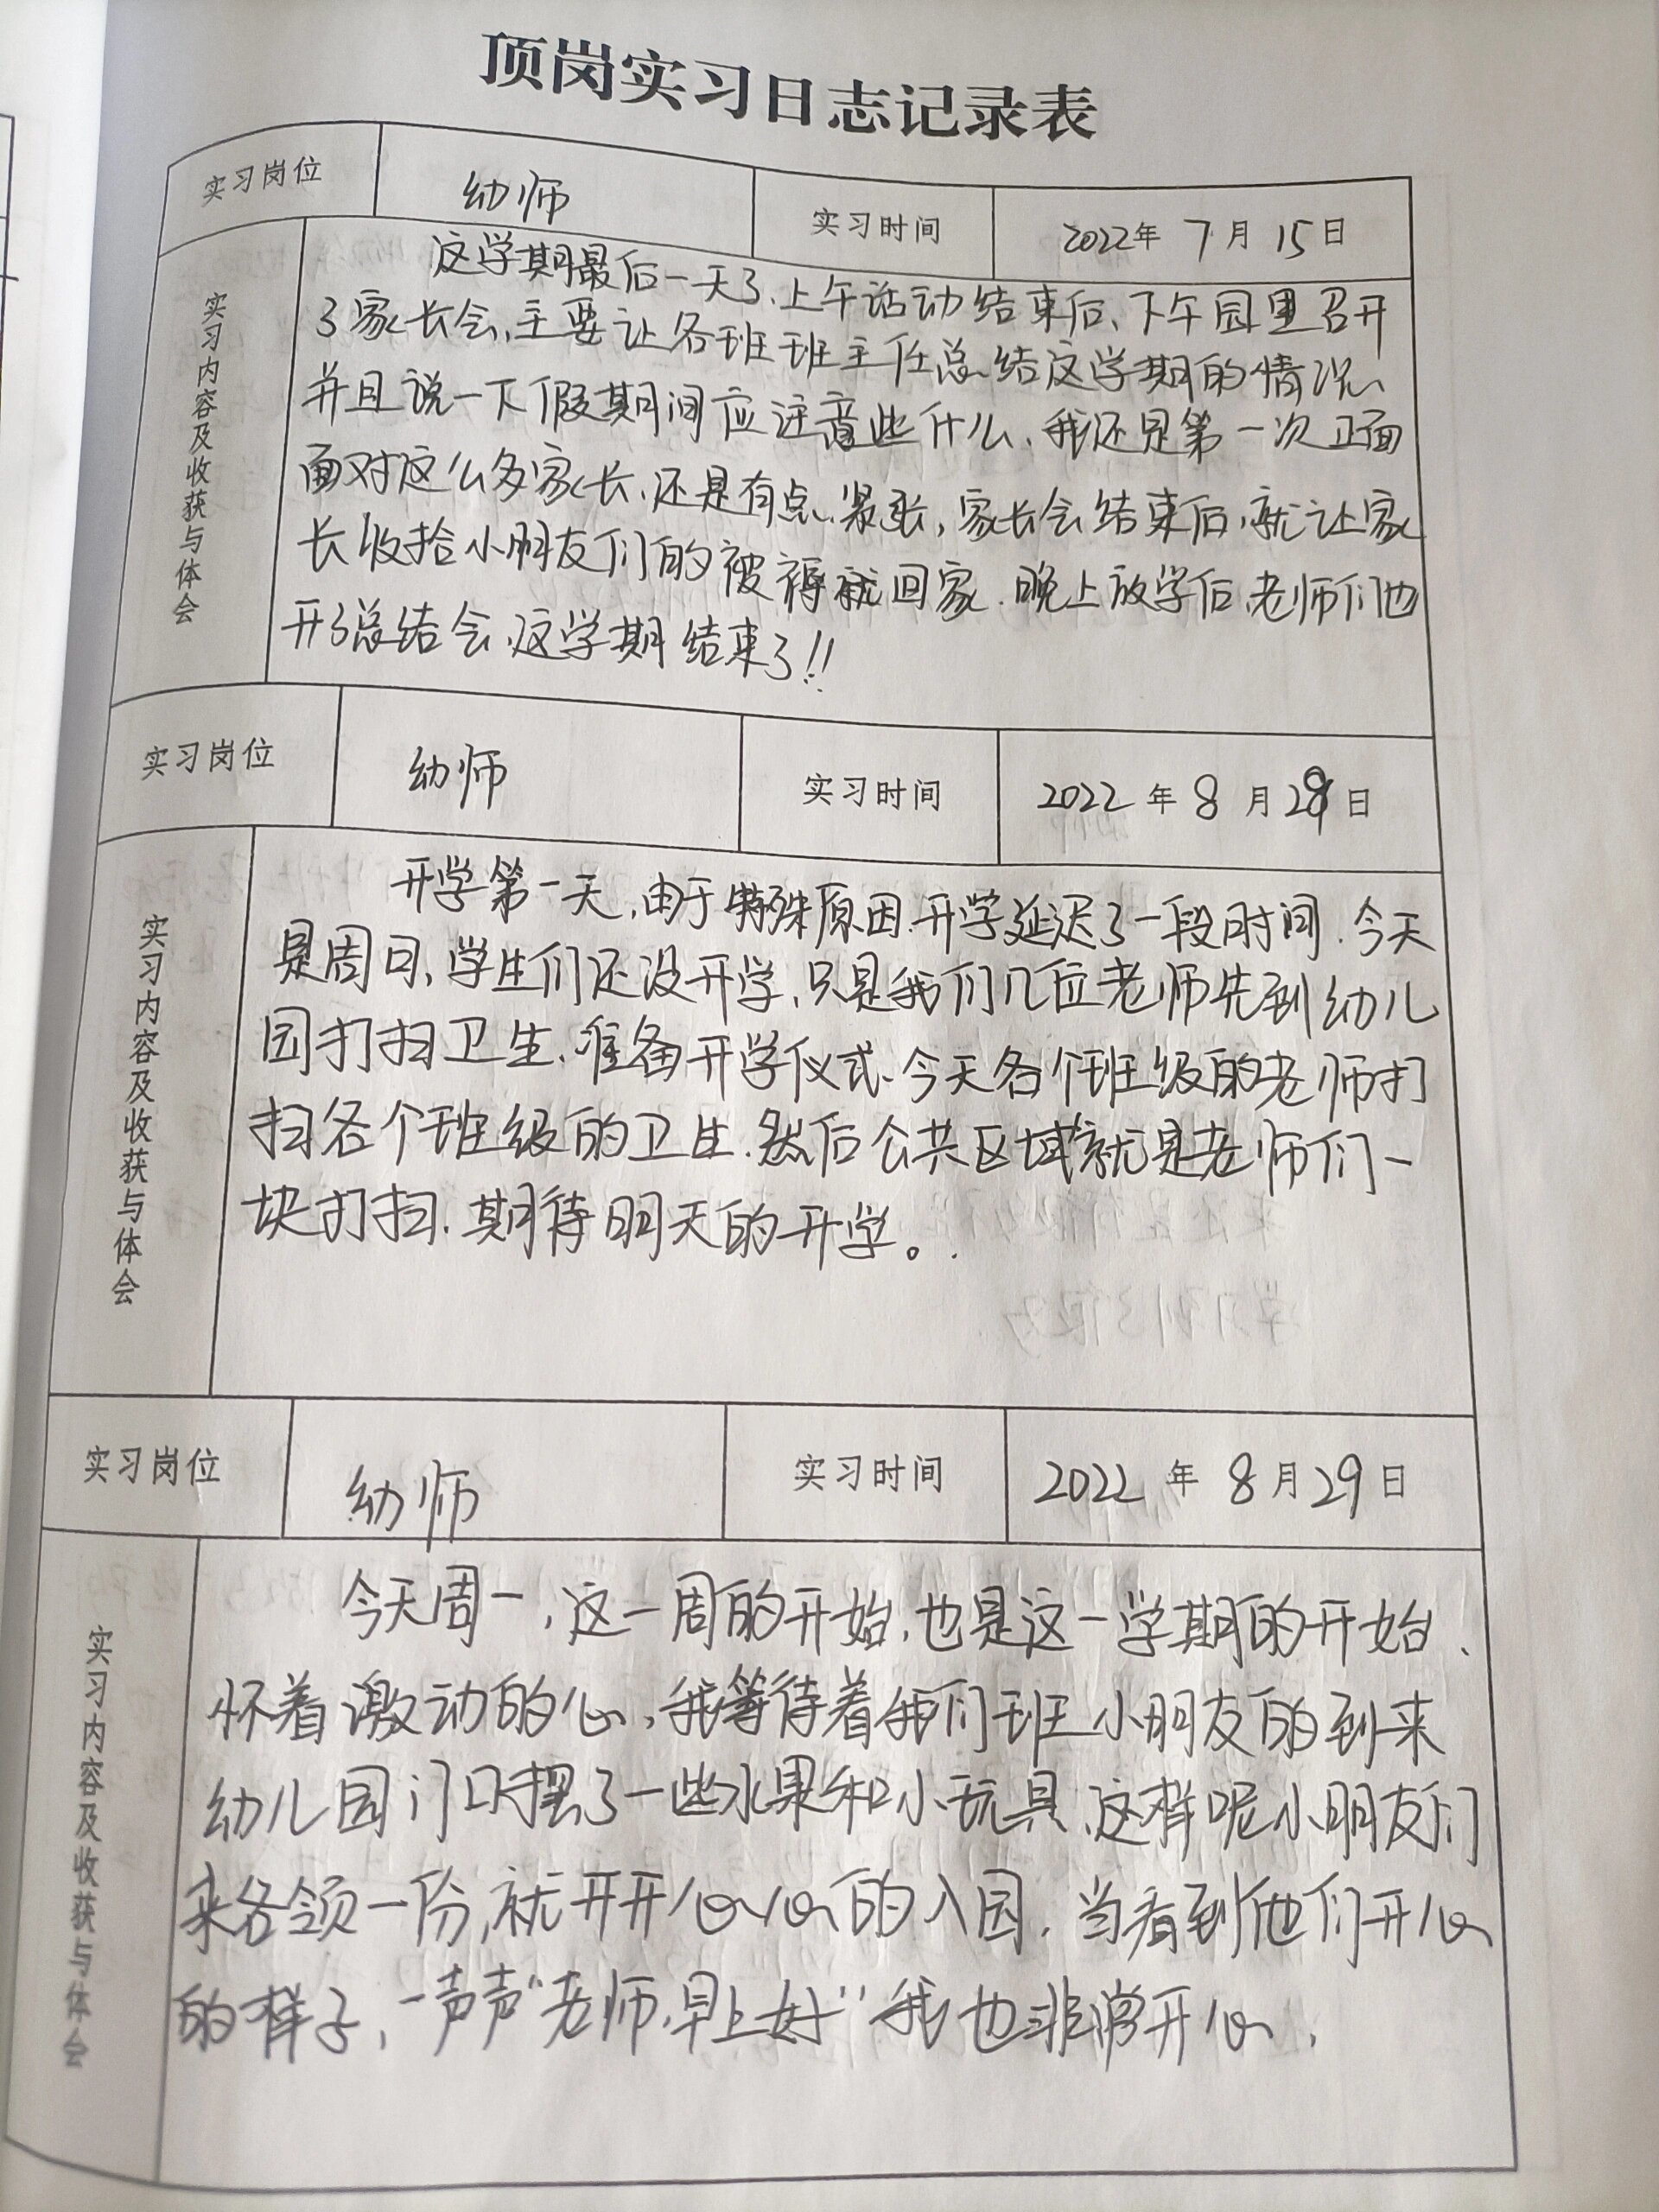 顶岗实习日志记录表
实习岗位 幼师 实习时间 2022年 7月 15日
实习内容及收获与体会
这学期最后一天了、上午活动结束后、下午园里召开
了家长会,主要让各班班主任总结这学期的情况、
并且说一下假期间应注意些什么、我还是第一次正面
面对这么多家长,还是有点紧张,家长会结束后,就让家
长收拾小朋友们的被褥就回家.晚上放学后,老师们也
开了总结会、这学期结束了!!
实习岗位 幼师 实习时间 2022 年 8 月 日
实习内容及收获与体会
开学第一天,由于特殊原因.开学延迟了一段时间.今天
是周日,学生们还没开学,只是我们几位老师先到幼儿
园打扫卫生、准备开学仪式、今天各个班级的老师打
扫各个班级的卫生.然后公共区域就是老师们一
块打扫.期待明天的开学。.
实习岗位 幼师 实习时间 2022 年 8月29日
实习内容及收获与体会
今天周一,这一周的开始,也是这一学期的开始、
怀着激动的心,我等待着我们班小朋友的到来
幼儿园门口摆了一些水果和小玩具、这样呢小朋友们
来各领一份,就开开心心的入园.当看到他们开心
的样子、一声声“老师,早上好”我也非常开心,